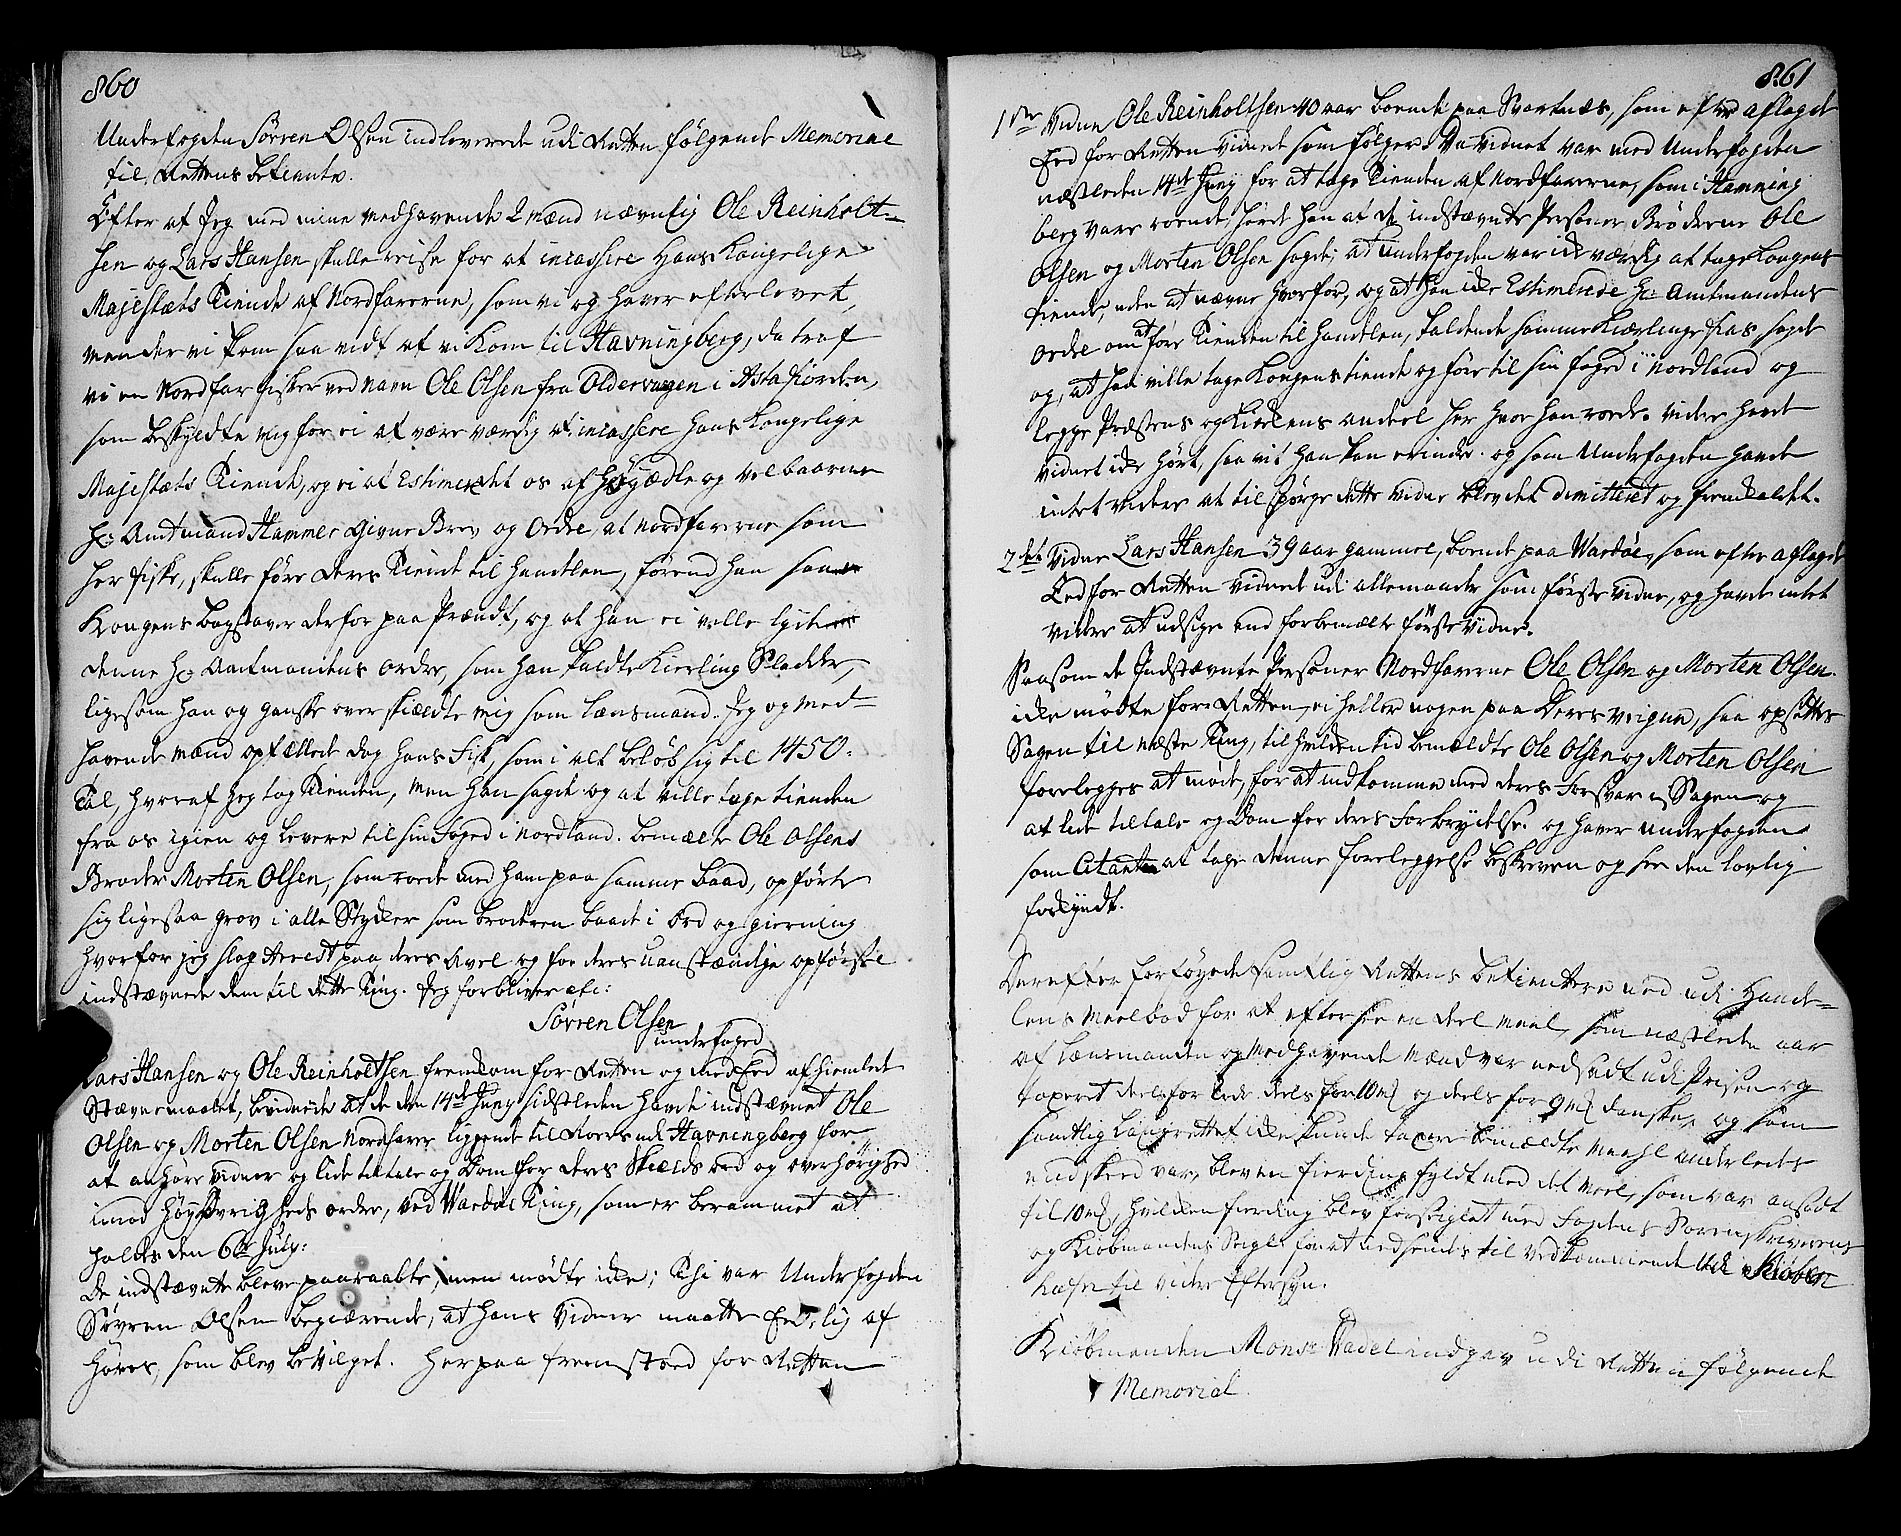 860
Underfogden Sörren Olsen indleverede udi Retten følgende Memorial
til Rettens betiente.
Efter at Jeg med mine medhavende 2 mænd nævnlig Ole Reinholt-
sen og Lars Hansen skulle reise for at incassere Hans Kongelige
Majestæts Tiende af Nordfarerne, som vi og haver efterlevet,
men der vi kom saa vidt at vi kom til Havningberg, da traf
vi en Nordfar fisker ved navn Ole Olsen fra Oldervugen i Astafiorden,
som beskyldte mig for ei at være værdig at incassere hans Kongelige
Majestæts Tiende, og ei at Estimerdet os af Høyædle og velbaarne
Hr. Amtmand Hammer givne Brev og Ordre, at Nordfarerne som
her fiske, skulle føre deres Tiende til handlen, førend han saae
Kongens bogstaver derfor paa Prændt, og at han ei ville lyde
denne Hr. Amtmandens ordre, som han kaldte Kierling Sladder,
ligesom han og ganske overskieldte mig som Lænsmand. Jeg og med-
havende mænd optællede dog hans Fisk, som i alt beløb sig til 1450.
Tal, hvoraf jeg tog Tienden, men han sagde og at ville tage tienden
fra os igien og levere til sin Foged i Nordland. bemælte Ole Olsens
Broder Morten Olsen, som roede med ham paa samme baad, opførte
sig ligesaa grov i alle Stykker som broderen baade i Ord og gierning
hvorfor jeg slog Arrest paa deres Avel og for deres uanstændige opførsel
indstævnede dem til dette Ting. Jeg forbliver etc:
Sörren Olsen
underfoged
Lars Hansen og Ole Reinholtsen fremkom for Retten og med Eed afhiemlede
Stævnemaalet, bevidnede at de den 14de Juny sidstleden havde indstævnet Ole
Olsen og Morten Olsen Nordfarer liggende til Roers udi Havningberg for
at anhøre vidner og lide tiltale og Dom for deres Skields ord og overhørighed
imod Høy Øvrigheds ordre, ved Wardøe Ting, som er berammet at
holdes den 6te July:
De indstævnte bleve paaraabte, men mödte ikke; Thi var Underfogden
Sørren Olsen begiærende, at hans Vidner maatte Eedelig af
høres, som blev bevilget. Herpaa fremstoed for Retten
861
1ste Vidne Ole Reinholtsen 40 aar boende paa Svartnæs, som efter aflagde
Eed for Retten vidnede som følger. Da vidnet var med Underfogden
næstleden 14de Juny for at tage Tienden af Nordfarerne, som i Hamning
berg vare roende, hørde han at de indstævnte Personer Brøderne Ole
Olsen og Morten Olsen sagde, at underfogden var ikke værdig at tage Kongens
tiende, uden at nævne hvorfor, og at han ikke Estimerede Hr. Amtmandens
ordre om at føre Tienden til handlen, kaldende samme Kiærlinge Kas, sagde
og, at han ville tage Kongens tiende og føre til sin foged i Nordland og
legge Præstens og Kirkens andeel her hvor han roede. videre havde
vidnet ikke hørt, saa vit han kan erindre. og som Underfogden havde
intet videre at tilspørge dette vidne blev det dimitteret og fremkaldet.
2det Vidne Lars Hansen 39 aar gammel, boende paa Wardøe, som efter aflagde
Eed for Retten vidnede udi allemaader som første vidne, og havde intet
videre at udsige end forbemælte første vidne.
Saasom de Indstævnte Personer Nordfarerne Ole Olsen og Morten Olsen
ikke mødte for Retten, ei heller nogen paa Deres veigne, saa opsættes
Sagen til næste Ting, til hvilken tid bemældte Ole Olsen og Morten Olsen
forelegges at møde, for at indkomme med deres Forsvar i Sagen og
at lide tiltale og Dom for deres Forbrydelse. og haver underfogden
som Citanten at tage denne foreleggelse beskreven og see den lovlig
forkyndt.
Derefter forføyede samtlig Rettens betientere ned udi Hande-
lens Meelbod for at eftersee en deel Meel, som næstleden aar
af Lænsmanden og Medhavende Mænd var nedsadt udi Prisen og
taxeret deels for lode deels for 10 M og deels for 9 M danske, og som
samtlig Laugrettet ikke kunde taxere bemældte Meehl anderledes
end skeed var, blev en fierding fyldt med det Meel, som var ansadt
til 10 M, hvilken fierding blev forsiglet med Fogdens Sorenskriverens
og Kiøbmandens Seigl for at nedsendes til vedkommende udi Kiøben
hafn til videre Eftersyn.
Kiøbmanden Monsr Wadel indgav udi Retten følgende
Memorial.